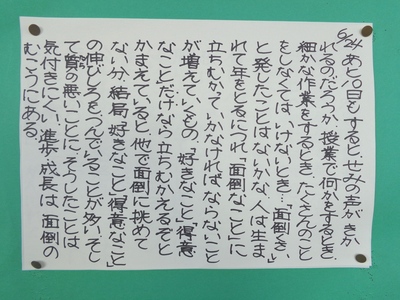 6/24 あと八日もするとせみの声がきか
れるのだろうか、授業で何かをするとき、
細かな作業をするとき、たくさんのこと
をしなくては、いけないとき…「面倒くさい」
と発したことはないかな。人は生ま
れて年をとるにつれ「面倒なこと」に
立ちむかていかなければ、ならないこと
が増えていくもの。「好きなこと」「得意
なことだけなら立ちむかえるぞと
かまえていると、他で面倒に挑めて
ない分、結局「好きなこと」「得意なこと」
の伸びしろをつんでいることが多い。そし
て質の悪いことに、そうしたことは
気付きにくい。進歩、成長は、面倒の
むこうにある。